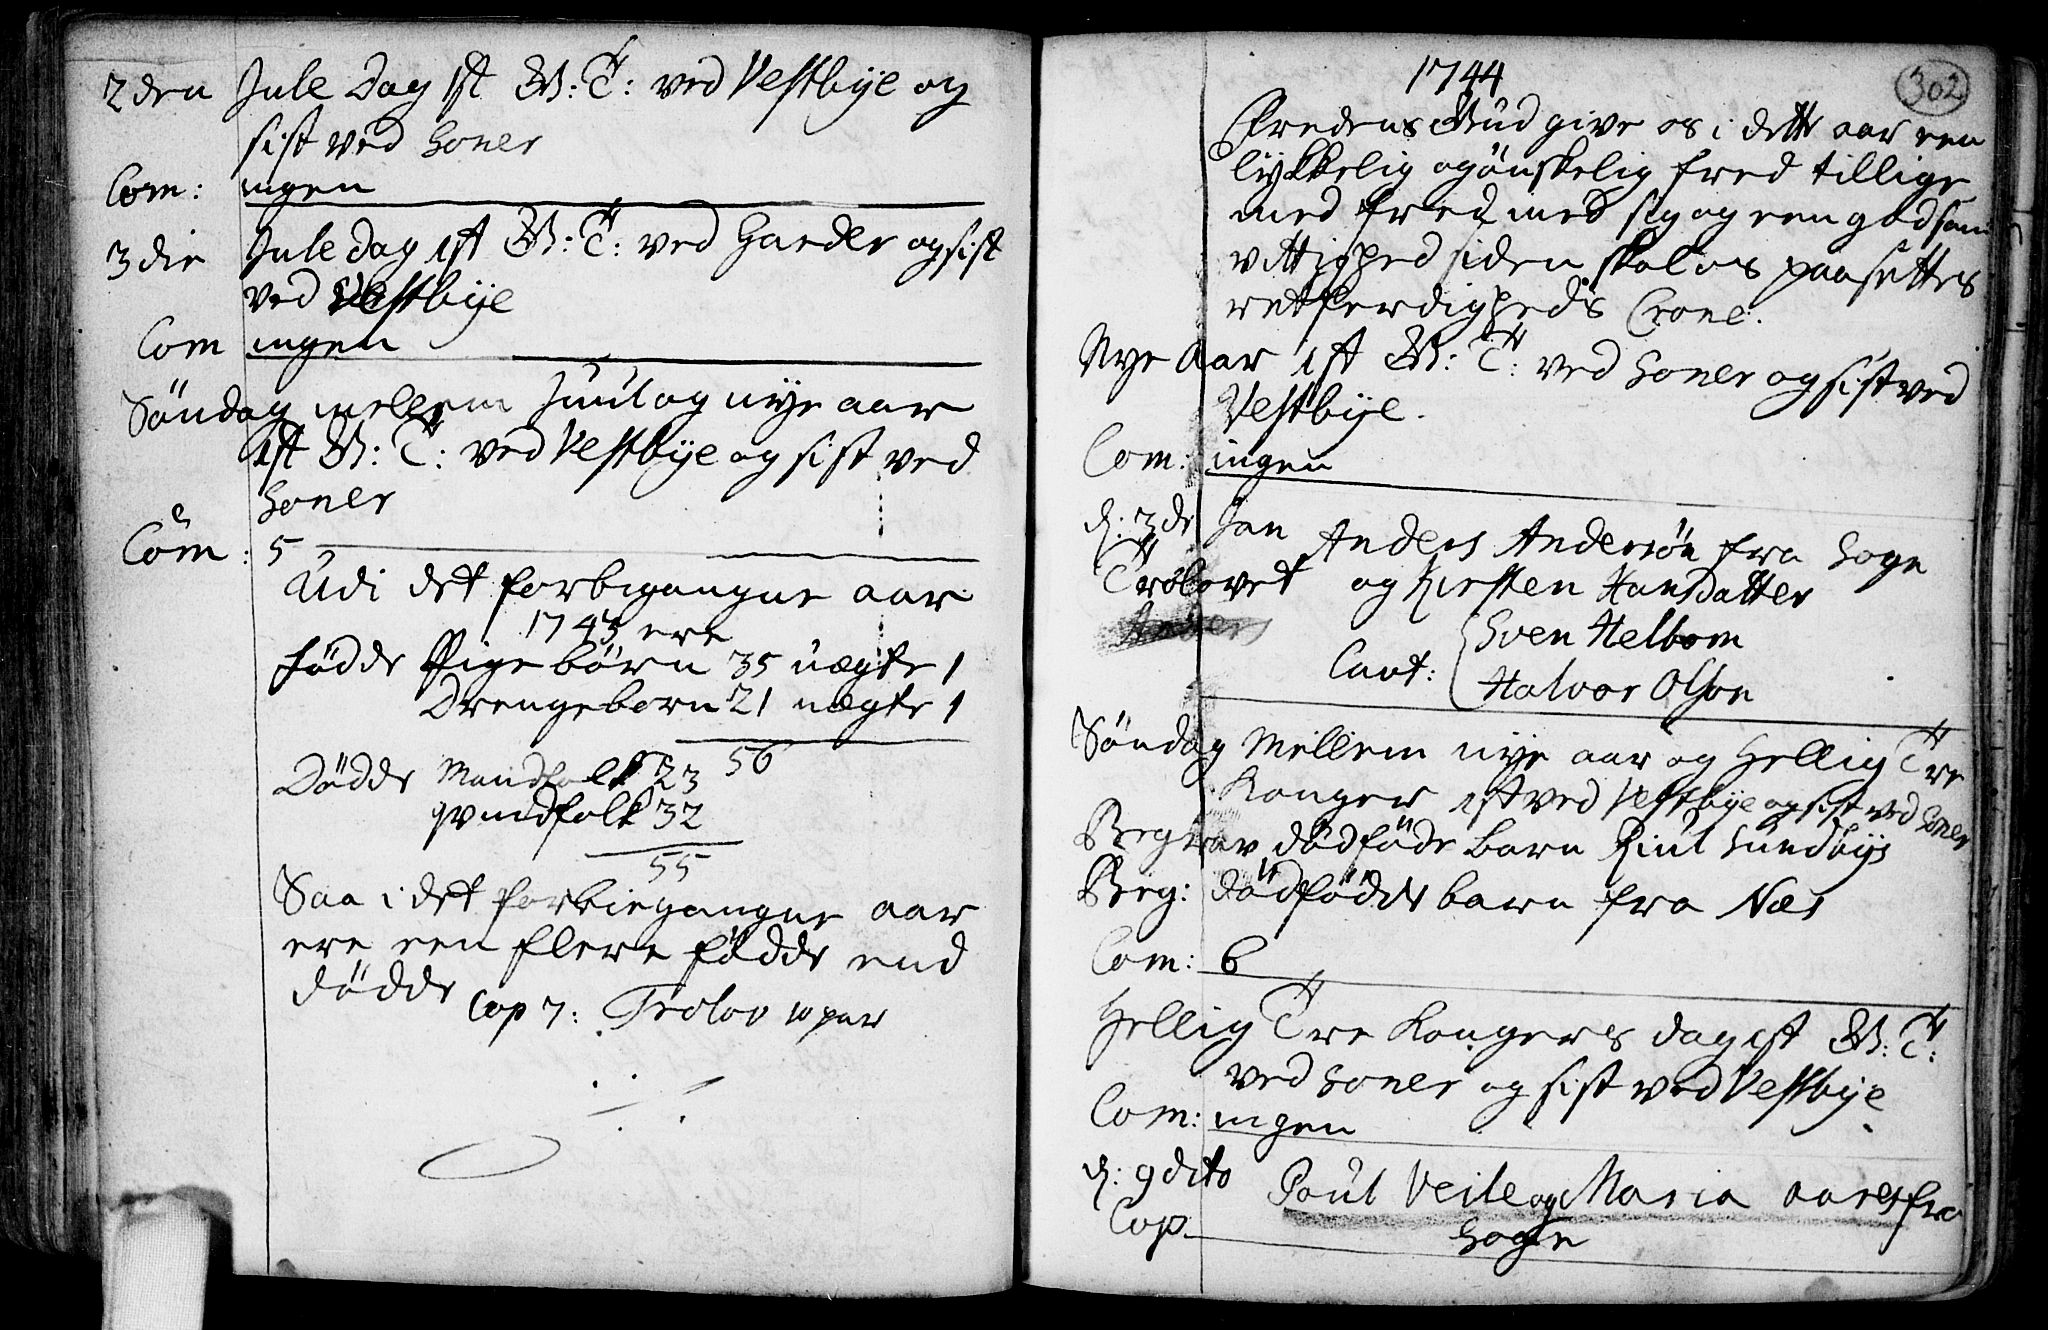 2den Jule Dag 1st G: T: ved Vestbÿe og
sist ved Soner
Com: ingen
3die Jule dag 1st G: T: ved Garder og sist
ved Vestbÿe
Com ingen
Söndag mellem Juul og nÿe aar
1st G: T: ved Vestbÿe og sist ved
Soner
Com: 5
Udi det forbigangne aar
1743 ere
födde Pige börn 35 uægte 1
Drengeborn 21 uægte 1
56
Dödde Mandfolk 23
qvindfolk 32
55
Saa i det forbiegangne aar
ere een flere födde end
dödde
Cop 7: Trolov 10 par
302
1744
Fredens Gud give os i dette aar een
lykkelig og önskelig fred tillige
med fred med sig og een god sam
vittighed siden skal os paasettes
retferdigheds Crone.
Nye Aar 1st G: T: ved Soner og sist ved
Vestbÿe.
Com: ingen
d: 3de Jan Anders Andersön fra Sogn
Trolovet og Kirsten Hansdatter
Anders
Caut: Sven Helbom
Halvor Olsön
Söndag Mellem nÿe aar og Hellig Tre
Konger 1st ved Vestbÿe og sist ved Soner
Begrav dödföde barn Sundbÿs
Beg: dödfödde barn fra Næs
Com: 6
Hellig Tre Kongers dag 1st G: T:
ved Soner og sist ved Vestbÿe.
Com: ingen
d: 9 dito Poul Veile og Maria aares fra
Cop. Sogn